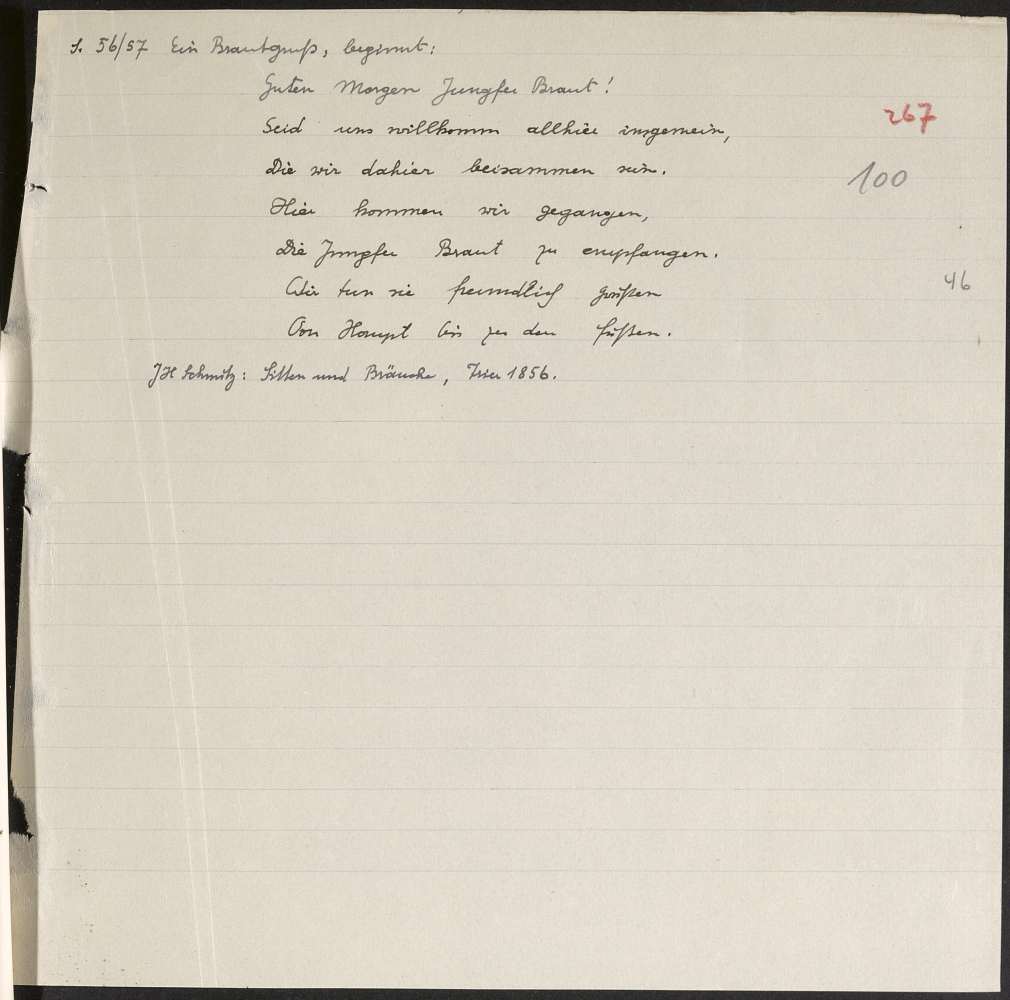 S. 56/57 Ein Brautgruß, beginnt:
Guten Morgen Jungfer Braut!
267
Seid uns willkomm allhier insgemein,
Die wir dahier beisammen sein.
100
Hier kommen wir gegangen,
Die Jungfer Braut zu empfangen.
46
Wir tun sie freundlich grüßen
Von Haupt bis zu den Füßen.
JH Schmitz: Sitten und Bräuche, Trier 1856.